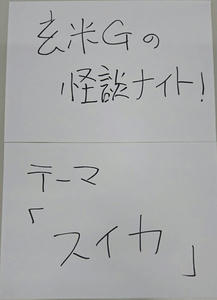 玄米Gの
怪談ナイト!
テーマ
「スイカ」